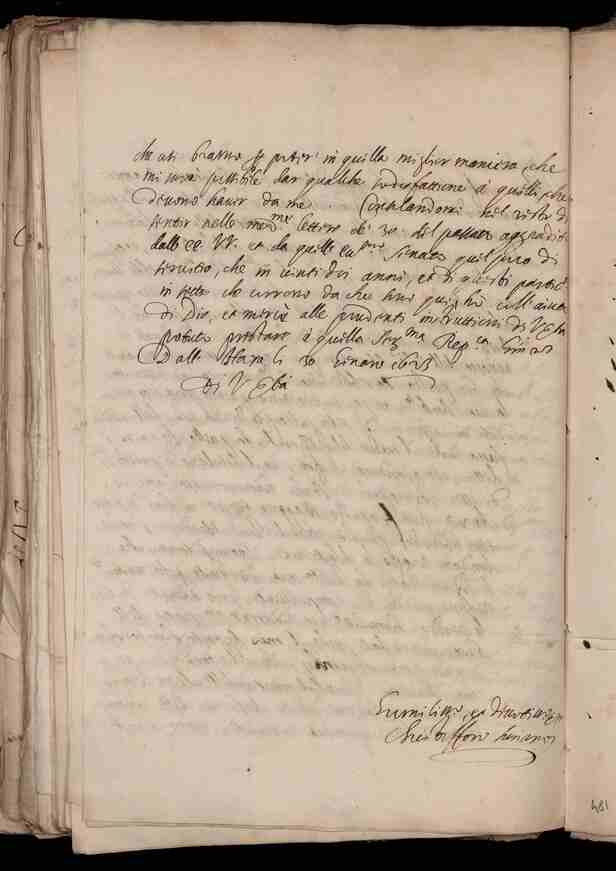 in quella miglior maniera, che
mi sarà possibile dar qualche sodisfattione à quelli, che
devono haver da me. Consolandomi del resto di
sentir nelle med.me lettere de' 30 del passato aggradito
dall' EE. VV. et da quell' ecc.mo Senato quel poco di
servitio, che in venti doi anni, et di questi
in sette che corrono da che sono qui, hò coll' aiuto
di Dio, et mercè alle prudenti instruttioni di V.
potuto prestare à quella Ser.ma Rep.ca
Dall' Haya li 30 Genaro 1623
Di V.
Humiliss.o, et Devotiss.o
Christofforo Suriano
481